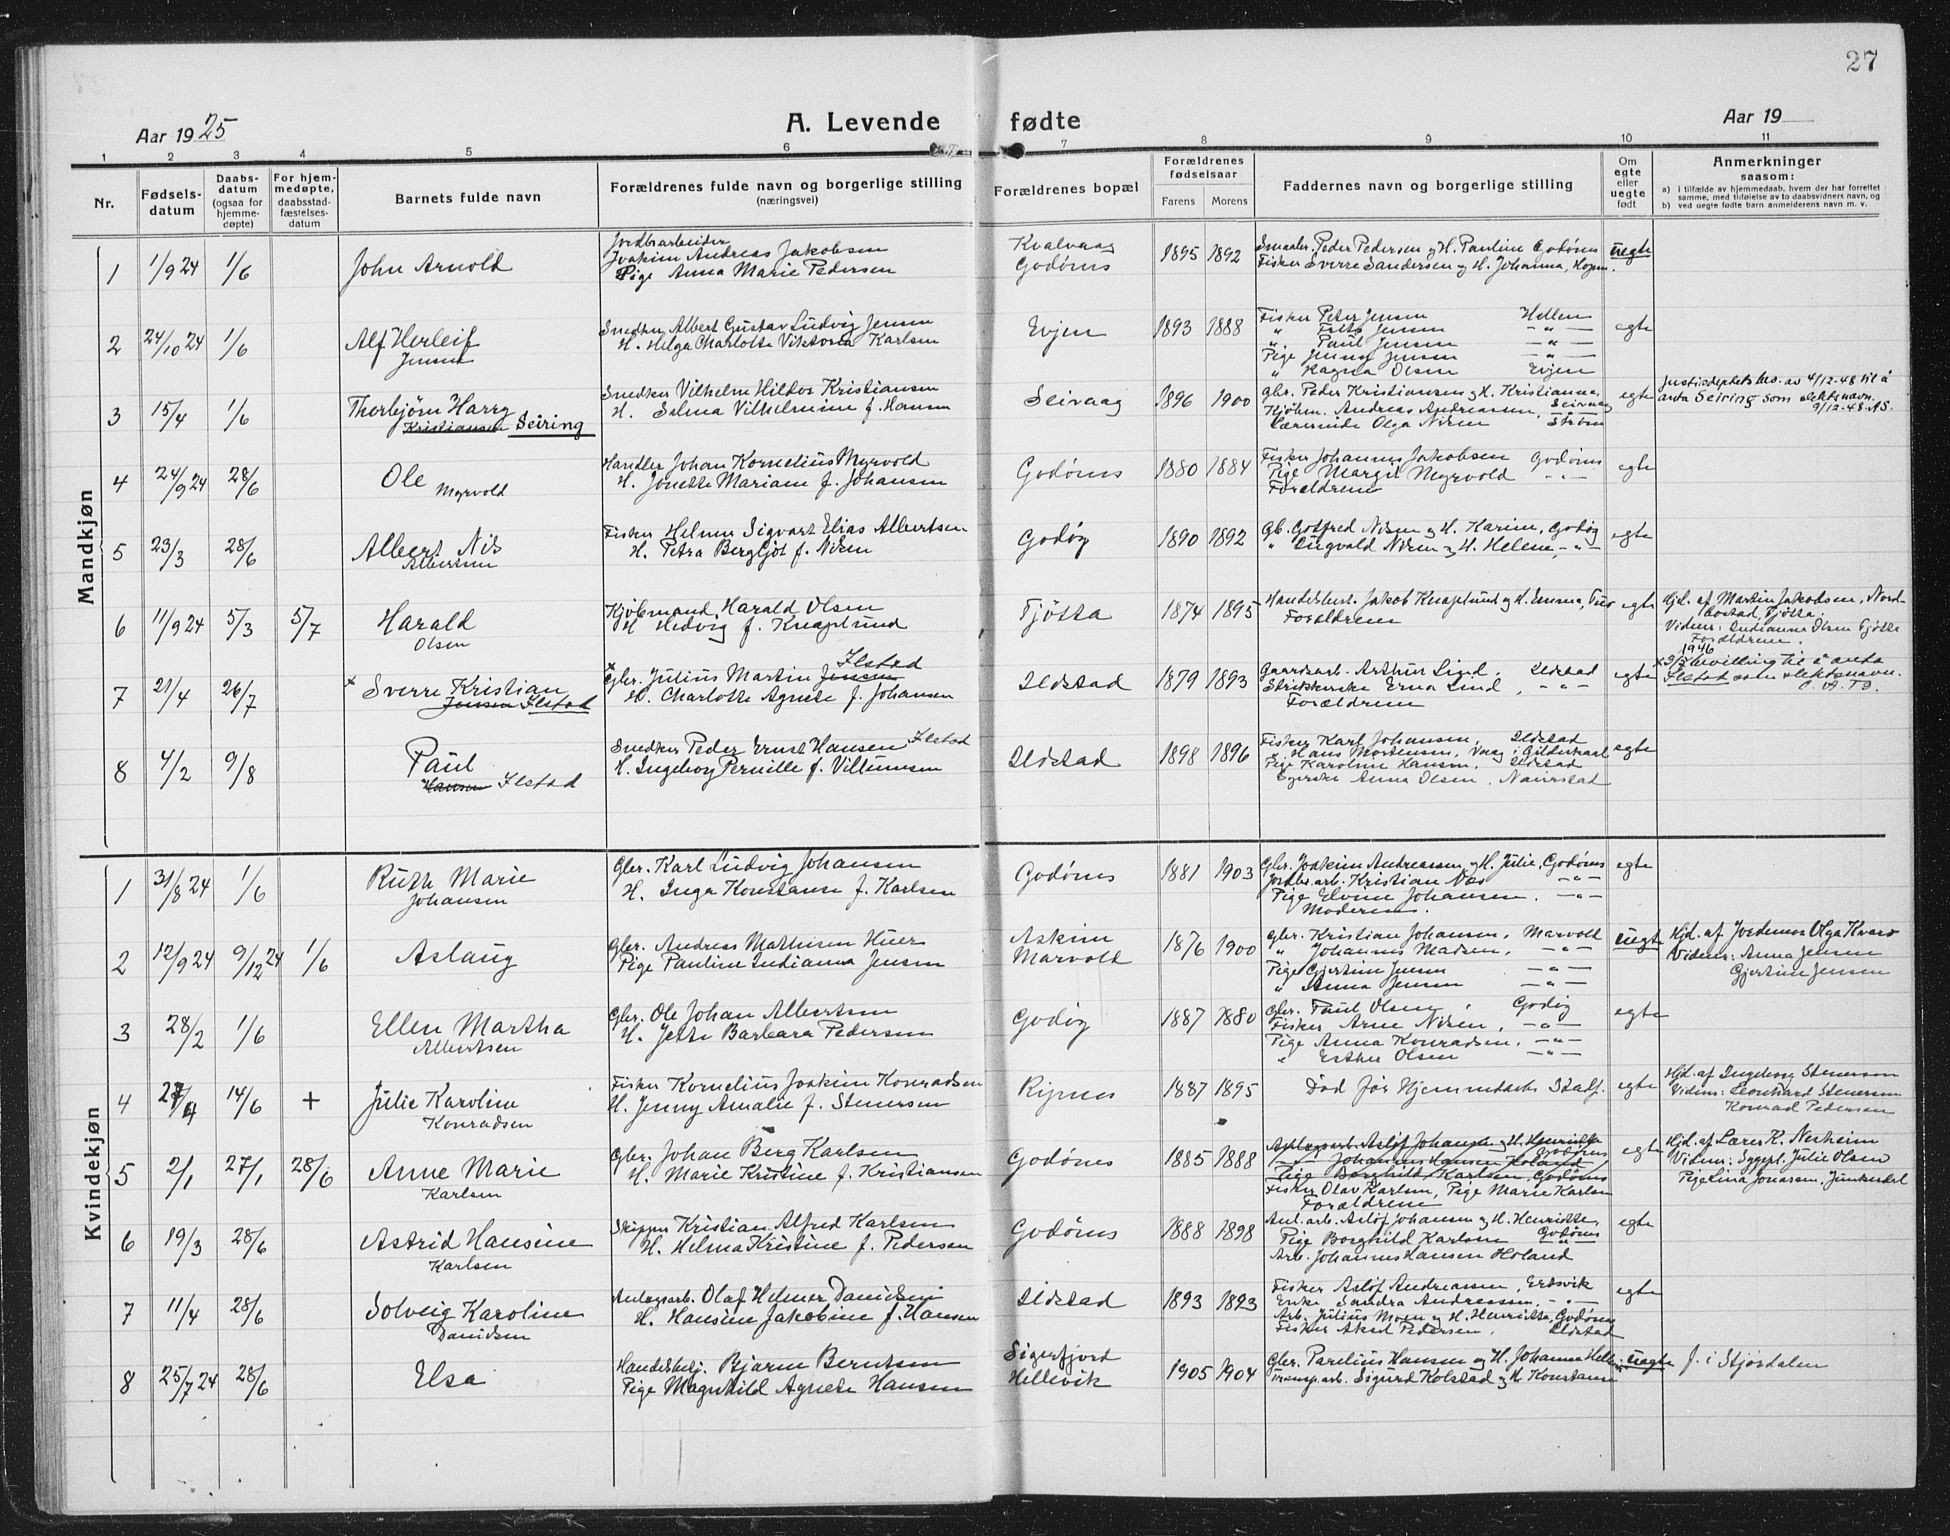 27
Aar 1925
A. Levende fødte
Aar 19
1 2 3 4 5 6 7 8 9 10 11
Nr.
Fødselsdatum
Daabsdatum (ogsaa for hjemmedøpte)
For hjemmedøpte, daabsstadfæstelsesdatum
Barnets fulde navn
Forældrenes fulde navn og borgerlige stilling (næringsvei)
Forældrenes bopæl
Forældrenes fødselsaar
Farens Morens
Faddernes navn og borgerlige stilling
Om egte eller uegte født
Anmerkninger saasom:
a) i tilfælde av hjemmedaab, hvem der har forrettet samme, med tilføielse av to daabsvidners navn, og
b) ved uegte fødte barn anmelderens navn m. v.
Mandkjøn
1 1/9 24 1/6 John Arnold
Jordbrarbeider
Joakim Andreas Jakobsen
Pige Anna Marie Pedersen
Kvalvaag
Godønes
1895 1892
Smaabr. Peder Pedersen og H. Pauline Godønes
Fisker Sverre Sandersen og H. Johanna,
uegte
2 24/10 24 1/6 Alf Herleif
Jensen
Snedker Albert Gustav Ludvig Jensen
H. Helga Charlotte Viktoria Karlsen
Evjen
1893 1888
Fisker Peter Jensen Hellem
" Jensen — " —
" Paul Jensen — " —
Pige Jenny Jensen — " —
" Ragna Olsen Evjen
egte
3 15/4 1/6 Thorbjørn Harry
Kristiansen Seiring
Snedker Vilhelm Hildor Kristiansen
H. Selma Vilhelmine f. Hansen
Seivaag
1896 1900
Gbr. Peder Kristiansen og H. Kristianna,
Kjøbm. Andreas Andreassen, Seivaag
Lærerinde Olga Nilsen Strøm
egte
Justisdeptets bev. av 4/12-48 til å
anta Seiring som slektsnavn.
9/12-48. AS.
4 24/9 24 28/6 Ole
Myrvold
Handler Johan Kornelius Myrvold
H. Jonette Mariane f. Johansen
Godønes
1880 1884
Fisker Johannes Jakobsen Godønes
Pige Margit Myrvold — " —
Forældrene
egte
5 23/3 28/6 Albert Nis
Albertsen
Fisker Helmer Sigvart Elias Albertsen
H. Petra Bergljot f. Nilsen
Godøy
1890 1892
Gb. Gotfred Nilsen og H. Karine, Godøy
" Nilsen og H. Helene, — " —
egte
6 11/9 24 5/3 5/7 Harald
Olsen
Kjøbmand Harald Olsen
H. Hedvig f. Knaplund
Tjøtta
1874 1895
Handelsbest. Jakob Knaplund og H. Emma,
Forældrene
egte
Hjd. af Martin Jakobsen, Nord-
bostad, Tjøtta.
Vidner: Indianna Olsen Tjøtta
Forældrene.
7 21/4 26/7 × Sverre Kristian
Jensen Ilstad
× Gbr. Julius Martin Jensen Ilstad
H. Charlotte Agnete f. Johansen
Ildstad
1879 1893
Gaardsarb. Arthur Lind, Ildstad
Erna Lind, — " —
Forældrene
egte
1946
bevilling til å anta
Ilstad som slektsnavn.
8 4/2 9/8 Paul
Hansen Ilstad
Snedker Peder Ernst Hansen Ilstad
H. Ingeborg Pernille f. Villumsen
Ildstad
1898 1896
Fisker Karl Johansen, Ildstad
" Hans Mortensen, Vaag i Gildeskaal
Pige Karoline Hansen, Ildstad
Syerske Anna Olsen, Naurstad
egte
Kvindekjøn
1 31/8 24 1/6 Ruth Marie
Johansen
Gbr. Karl Ludvig Johansen
H. Inga Konstanse f. Karlsen
Godønes
1881 1903
Gbr. Joakim Andreassen og H. Julie, Godønes
Jordbr.arb. Kristian Næs — " —
Pige Elvine Johansen. — " —
Moderen.
egte
2 12/9 24 9/12 24 1/6 Aslaug
Gbr. Andreas Mathisen Huer
Pige Pauline Indianna Jensen
Askim
Marvold
1876 1900
Gbr. Kristian Johansen, Marvoll
" Johannes Madsen, — " —
Pige Gjertine Jensen — " —
" Anna Jensen — " —
uegte
Hjd. af Jordemor Olga Kvarv
Vidner: Anna Jensen
Gjertine Jensen
3 28/2 1/6 Ellen Martha
Albertsen
Gbr. Ole Johan Albertsen
H. Jette Barbara Pedersen
Godøy
1887 1880
Gbr. Paul Olsen, Godøy
Fisker Arne Nilsen, — " —
Pige Anna Konradsen, — " —
" Esther Olsen — " —
egte
4 14/6 + Julie Karoline
Konradsen
Fisker Kornelius Joakim Konradsen
H. Jenny Amalie f. Stenersen
Rypnes
1887 1895
Død før Hjemmedaabs Stadf.
egte
Hjd. af Ingeborg Stenersen
Vidner: Leonhard Stenersen
Konrad Pedersen
5 2/1 27/1 28/6 Anne Marie
Karlsen
Gbr. Johan Berg Karlsen
H. Marie Kristine f. Kristiansen
Godønes
1885 1888
Anlægsarb. Asløf Johansen og H. Henriette
Godønes
Johannes Hansen Holand
Pige Borghild Karlsen, Godønes
Fisker Olav Karlsen, Pige Marie Karlsen
Forældrene
egte
Hjd. af Lærer K. Nesheim
Vidner: Sygepl. Julie Olsen
Pige Lina Jonassen, Junkerdal
6 19/3 28/6 Astrid Hansine
Karlsen
Skipper Kristian Alfred Karlsen
H. Helma Kristine f. Pedersen
Godønes
1888 1898
Anl. arb. Asløf Johansen og H. Henriette,
Pige Borghild Karlsen Godønes
Arb. Johannes Hansen Holand
egte
7 11/4 28/6 Solveig Karoline
Danielsen
Anlægsarb. Olaf Helmer Danielsen
H. Hansine Jakobine f. Hansen
Ildstad
1893 1893
Fisker Asløf Andreassen, Ertsvik
Enke Sandra Andreassen, — " —
Arb. Julius Moen og H. Henriette, Godønes
Fisker Aksel Pedersen, Ildstad
egte
8 25/7 24 28/6 Elsa
Handelsbetj. Bjarne Berntsen
Pige Magnhild Agnete Hansen
Sigerfjord
Hellevik
1905 1904
Gbr. Parelius Hansen og H. Johanna
Sigurd Kolstad og H. Konstanse
uegte
f. i Stjørdalen